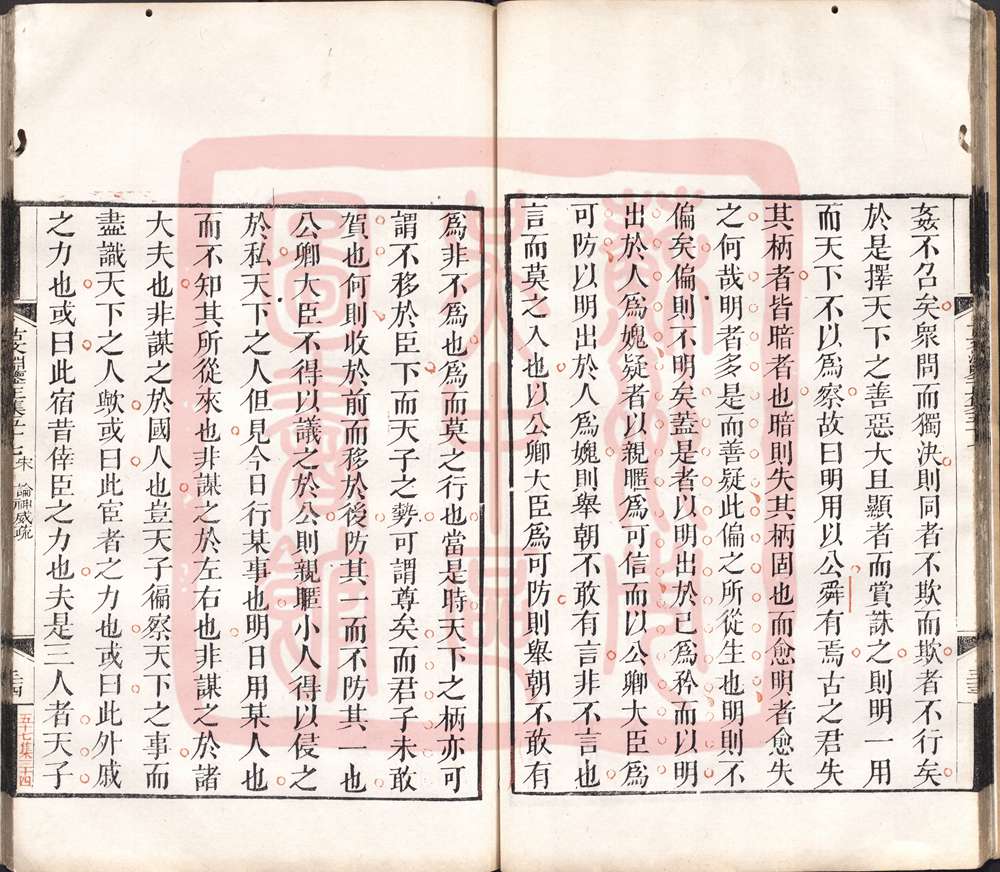 姦不召矣衆問而獨決則同者不欺而欺者不行矣
於是擇天下之善惡大且顯者而賞誅之則明一用
而天下不以爲察故曰明用以公舜有焉古之君失
其柄者皆暗者也暗則失其柄固也而愈明者愈失
之何哉明者多是而善疑此偏之所從生也明則不
偏矣偏則不明矣蓋是者以明出於已爲矜而以明
出於人爲媿疑者以親暱爲可信而以公卿大臣爲
可防以明出於人爲媿則舉朝不敢有言非不言也
言而莫之入也以公卿大臣爲可防則舉朝不敢有
爲非不爲也爲而莫之行也當是時天下之柄亦可
謂不移於臣下而天子之勢可謂尊矣而君子未敢
賀也何則收於前而移於後防其一而不防其一也
公卿大臣不得以議之於公則親暱小人得以侵之
於私天下之人但見今日行某事也明日用某人也
而不知其所從來也非謀之於左右也非謀之於諸
大夫也非謀之於國人也豈天子徧察天下之事而
盡識天下之人歟或曰此宦者之力也或曰此外戚
之力也或曰此宿昔倖臣之力也夫是三人者天子
古文淵鑒正集五十七 宋 論神威疏
五十七集三十四